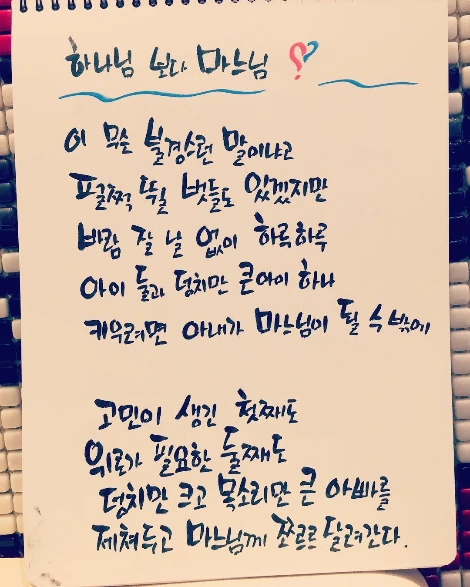 하나님 보다 마느님 ??
이 무슨 불경스런 말이냐고
펄쩍 뛰실 벗들도 있겠지만
바람 잘 날 없이 하루하루
아이 둘과 덩치만 큰아이 하나
키우려면 아내가 마느님이 될 수 밖에
고민이 생긴 첫째도
위로가 필요한 둘째도
덩치만 크고 목소리만 큰 아빠를
제쳐두고 마느님께 쪼르르 달려간다.